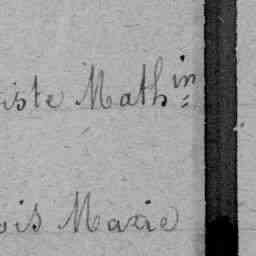 iste Mathin
ois Marie